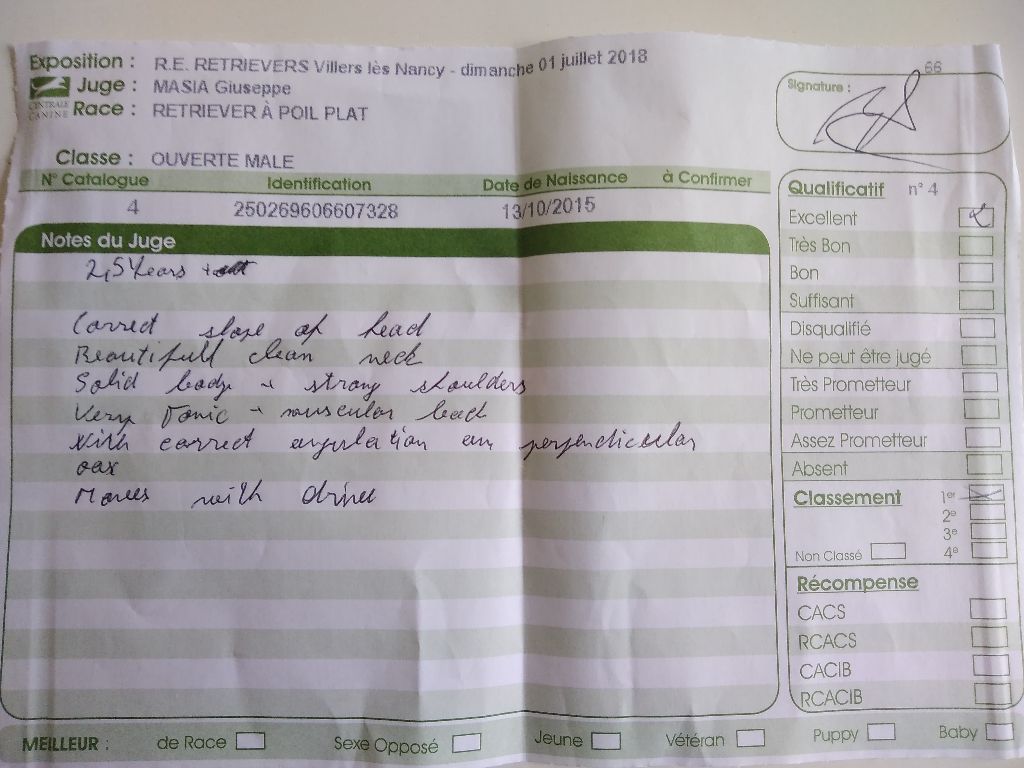 66
Exposition : R.E. RETRIEVERS Villers lès Nancy - dimanche 01 juillet 2018
Juge : MASIA Giuseppe
CENTRALE CANINE
Race : RETRIEVER À POIL PLAT
Classe : OUVERTE MALE
Signature :
N° Catalogue Identification Date de Naissance à Confirmer
4 250269606607328 13/10/2015
Notes du Juge
2,5 Years
Correct slope of head
Beautifull clean neck
Solid body + strong shoulders
Very Tonic - muscular back
With correct angulation an perpendicular
Moves with drive
Qualificatif n° 4
Excellent
Très Bon
Bon
Suffisant
Disqualifié
Ne peut être jugé
Très Prometteur
Prometteur
Assez Prometteur
Absent
Classement 1er
2e
3e
Non Classé 4e
Récompense
CACS
RCACS
CACIB
RCACIB
MEILLEUR : de Race Sexe Opposé Jeune Vétéran Puppy Baby